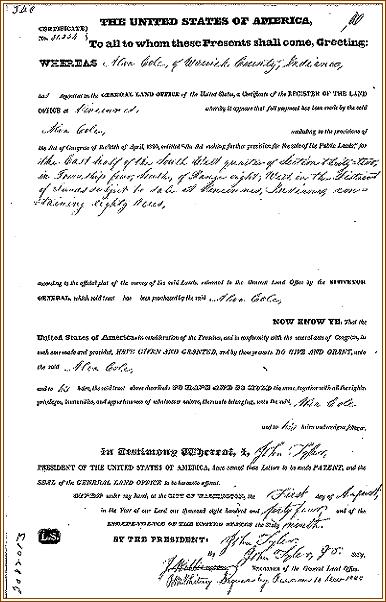 THE UNITED STATES OF AMERICA,
CERTIFICATE
To all to whom these Presents shall come, Greeting:
WHEREAS Alva Cole, of Warrick County, Indiana,
has deposited in the GENERAL LAND OFFICE of the United States, a Certificate of the REGISTER OF THE LAND
OFFICE at Vincennes, whereby it appears that full payment has been made by the said
Alva Cole, according to the provisions of
the Act of Congress of the 24th of April, 1820, entitled "An Act making further provision for the sale of the Public Lands," for
the East half of the South West quarter of Section thirty-two,
in Township four, South, of Range eight, West in the District
of Lands subject to sale at Vincennes, Indiana, con-
taining eighty Acres,
according to the official plat of the survey of the said Lands, returned to the General Land Office by the SURVEYOR
GENERAL, which said tract has been purchased by the said Alva Cole,
NOW KNOW YE, That the
United States of America, in consideration of the Premises, and in conformity with the several acts of Congress, in
such case made and provided, HAVE GIVEN AND GRANTED, and by these presents DO GIVE AND GRANT, unto
the said Alva Cole,
and to his heirs, the said tract above described: TO HAVE AND TO HOLD the same, together with all the rights,
privileges, immunities, and appurtenances of whatsoever nature, thereunto belonging, unto the said Alva Cole
and to his heirs and assigns forever.
In Testimony Whereof, I, John Tyler
PRESIDENT OF THE UNITED STATES OF AMERICA, have caused these Letters to be made PATENT, and the
SEAL of the GENERAL LAND OFFICE to be hereunto affixed.
GIVEN under my hand, at the CITY OF WASHINGTON, the First day of August,
in the Year of our Lord one thousand eight hundred and forty four and of the
INDEPENDENCE OF THE UNITED STATES the Sixty ninth.
BY THE PRESIDENT: John Tyler
L.S.
By John Tyler, Jr. Sec'y.
RECORDER of the General Land Office.